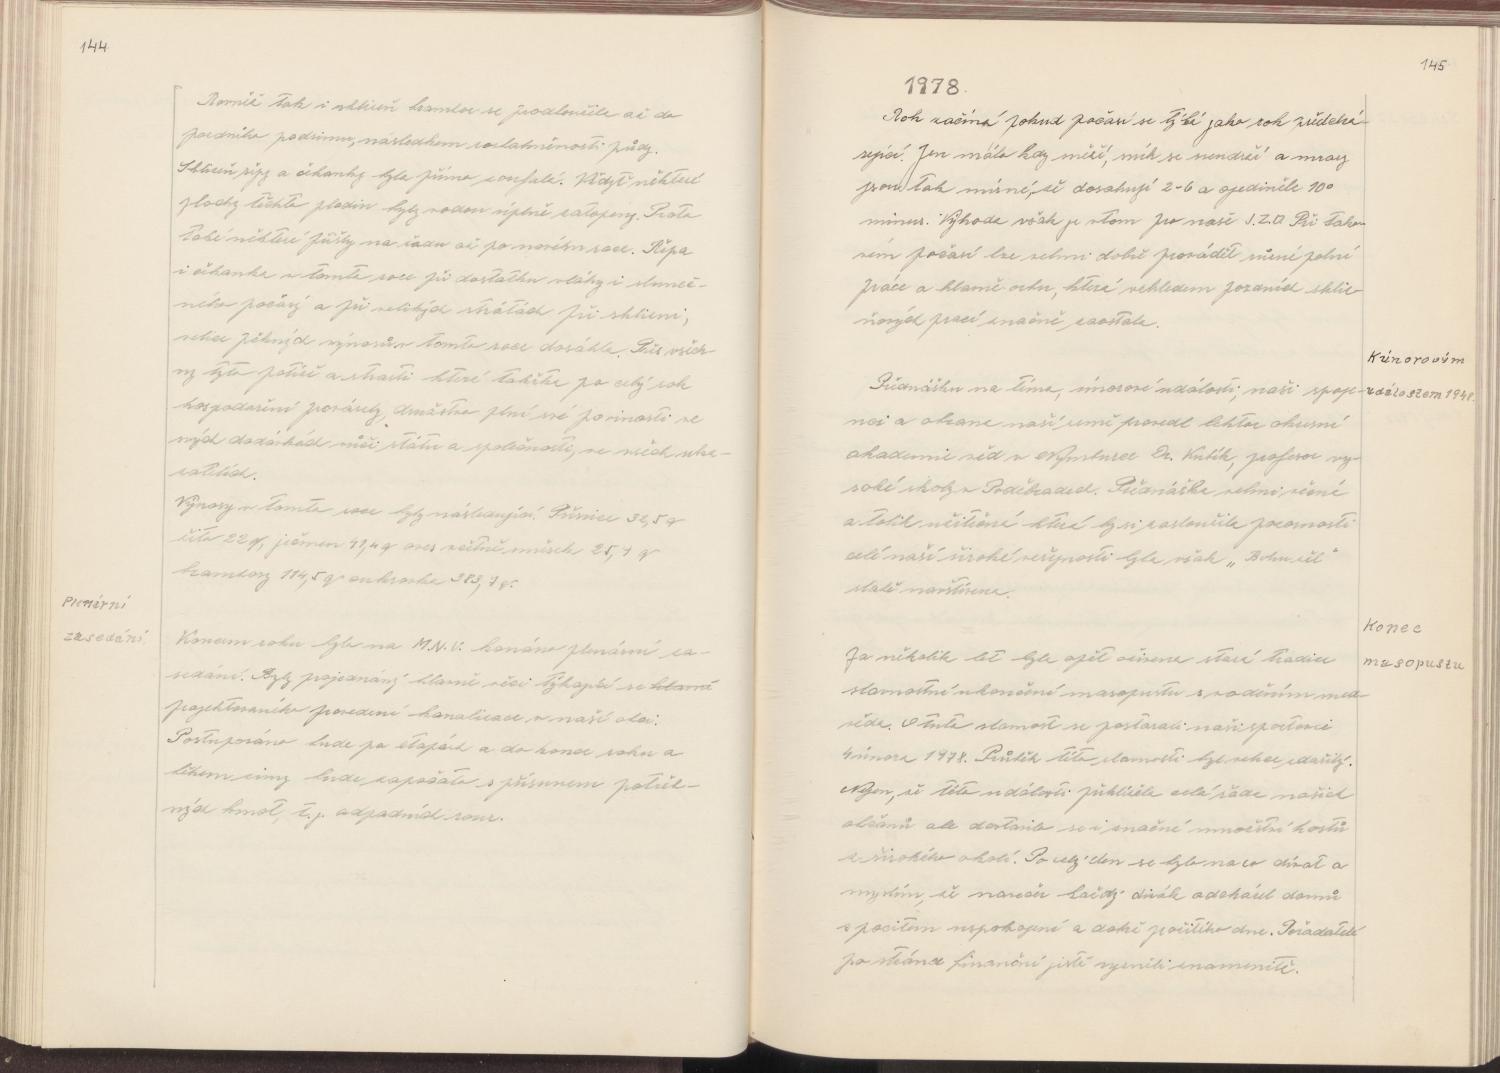 144
Rovněž tak i sklizeň brambor se prodloužila až do
pozdního podzimu, následkem rozbahněnosti půdy.
Sklizeň řípy a čekanky byla přímo zoufalá. Vždyť některé
plochy těchto plodin byly vodou úplně zatopeny. Proto
také některé přišly na řadu až po novém roce. Řepa
i čekanka v tomto roce při dostatku vláhy i sluneč-
ného počasí a při velikých ztrátách při sklizni,
velice pěkných výnosů v tomto roce dosáhla. Přes všech-
ny tyto potíže a strasti které takřka po celý rok
hospodaření provázely, družstvo plní své povinosti ve
svých dodávkách vůči státu a společnosti, ve všech uka-
zatelích.
Výnosy v tomto roce byly následující. Pšenice 32,5 q
žito 22 q, ječmen 41,4 q oves včetně směsek 25,4 q
brambory 114,5 q cukrovka 383,7 q.
Plenární
zasedání
Koncem roku bylo na M.N.V. konáno plenární za-
sedání. Byly projednány hlavně věci týkající se hlavně
projektovaného provedení kanalizace v naší obci.
Postupováno bude po etapách a do konce roku a
během zimy bude započato s přísunem potřeb-
ných hmot, t.j. odpadních rour.
145
1978.
Rok začíná pokud počasí se týče jako rok předchá-
zející. Jen málo kdy sněží, sníh se neudrží a mrazy
jsou tak mírné, že dosahují 2-6 a ojediněle 10°
minus. Výhoda však je v tom pro naše J.Z.D. Při tako-
vém počasí lze velmi dobře provádět různé polní
práce a hlavně orbu, která vzhledem pozdních skliz-
ňových prací značně zaostala.
K únorovým
událostem 1948.
Přednášku na téma, únorové události, naši spoje-
nci a obrana naší země provedl lektor okresní
akademie věd v Nymburce Dr. Kubík, profesor vy-
soké školy v Poděbradech. Přednáška velmi věcná
a tolik užitečná která by si zasloužila pozornosti
celé naší široké veřejnosti byla však „Bohužel"
slabě navštívena.
Konec
masopustu
Za několik let byla opět oživena stará tradice
slavnostní ukončení masopustu s voděním med-
věda. O tuto slavnost se postarali naši sportovci
4 února 1978. Průběh této slavnosti byl velice zdařilý.
Nejen, že této události přihlížela celá řada našich
občanů ale dostavilo se i značné množství hostů
z širokého okolí. Po celý den se bylo na co dívat a
myslím, že navečer každý divák odcházel domů
s pocitem uspokojení a dobře prožitého dne. Pořadatelé
po stránce finanční jistě vyzněli znamenitě.